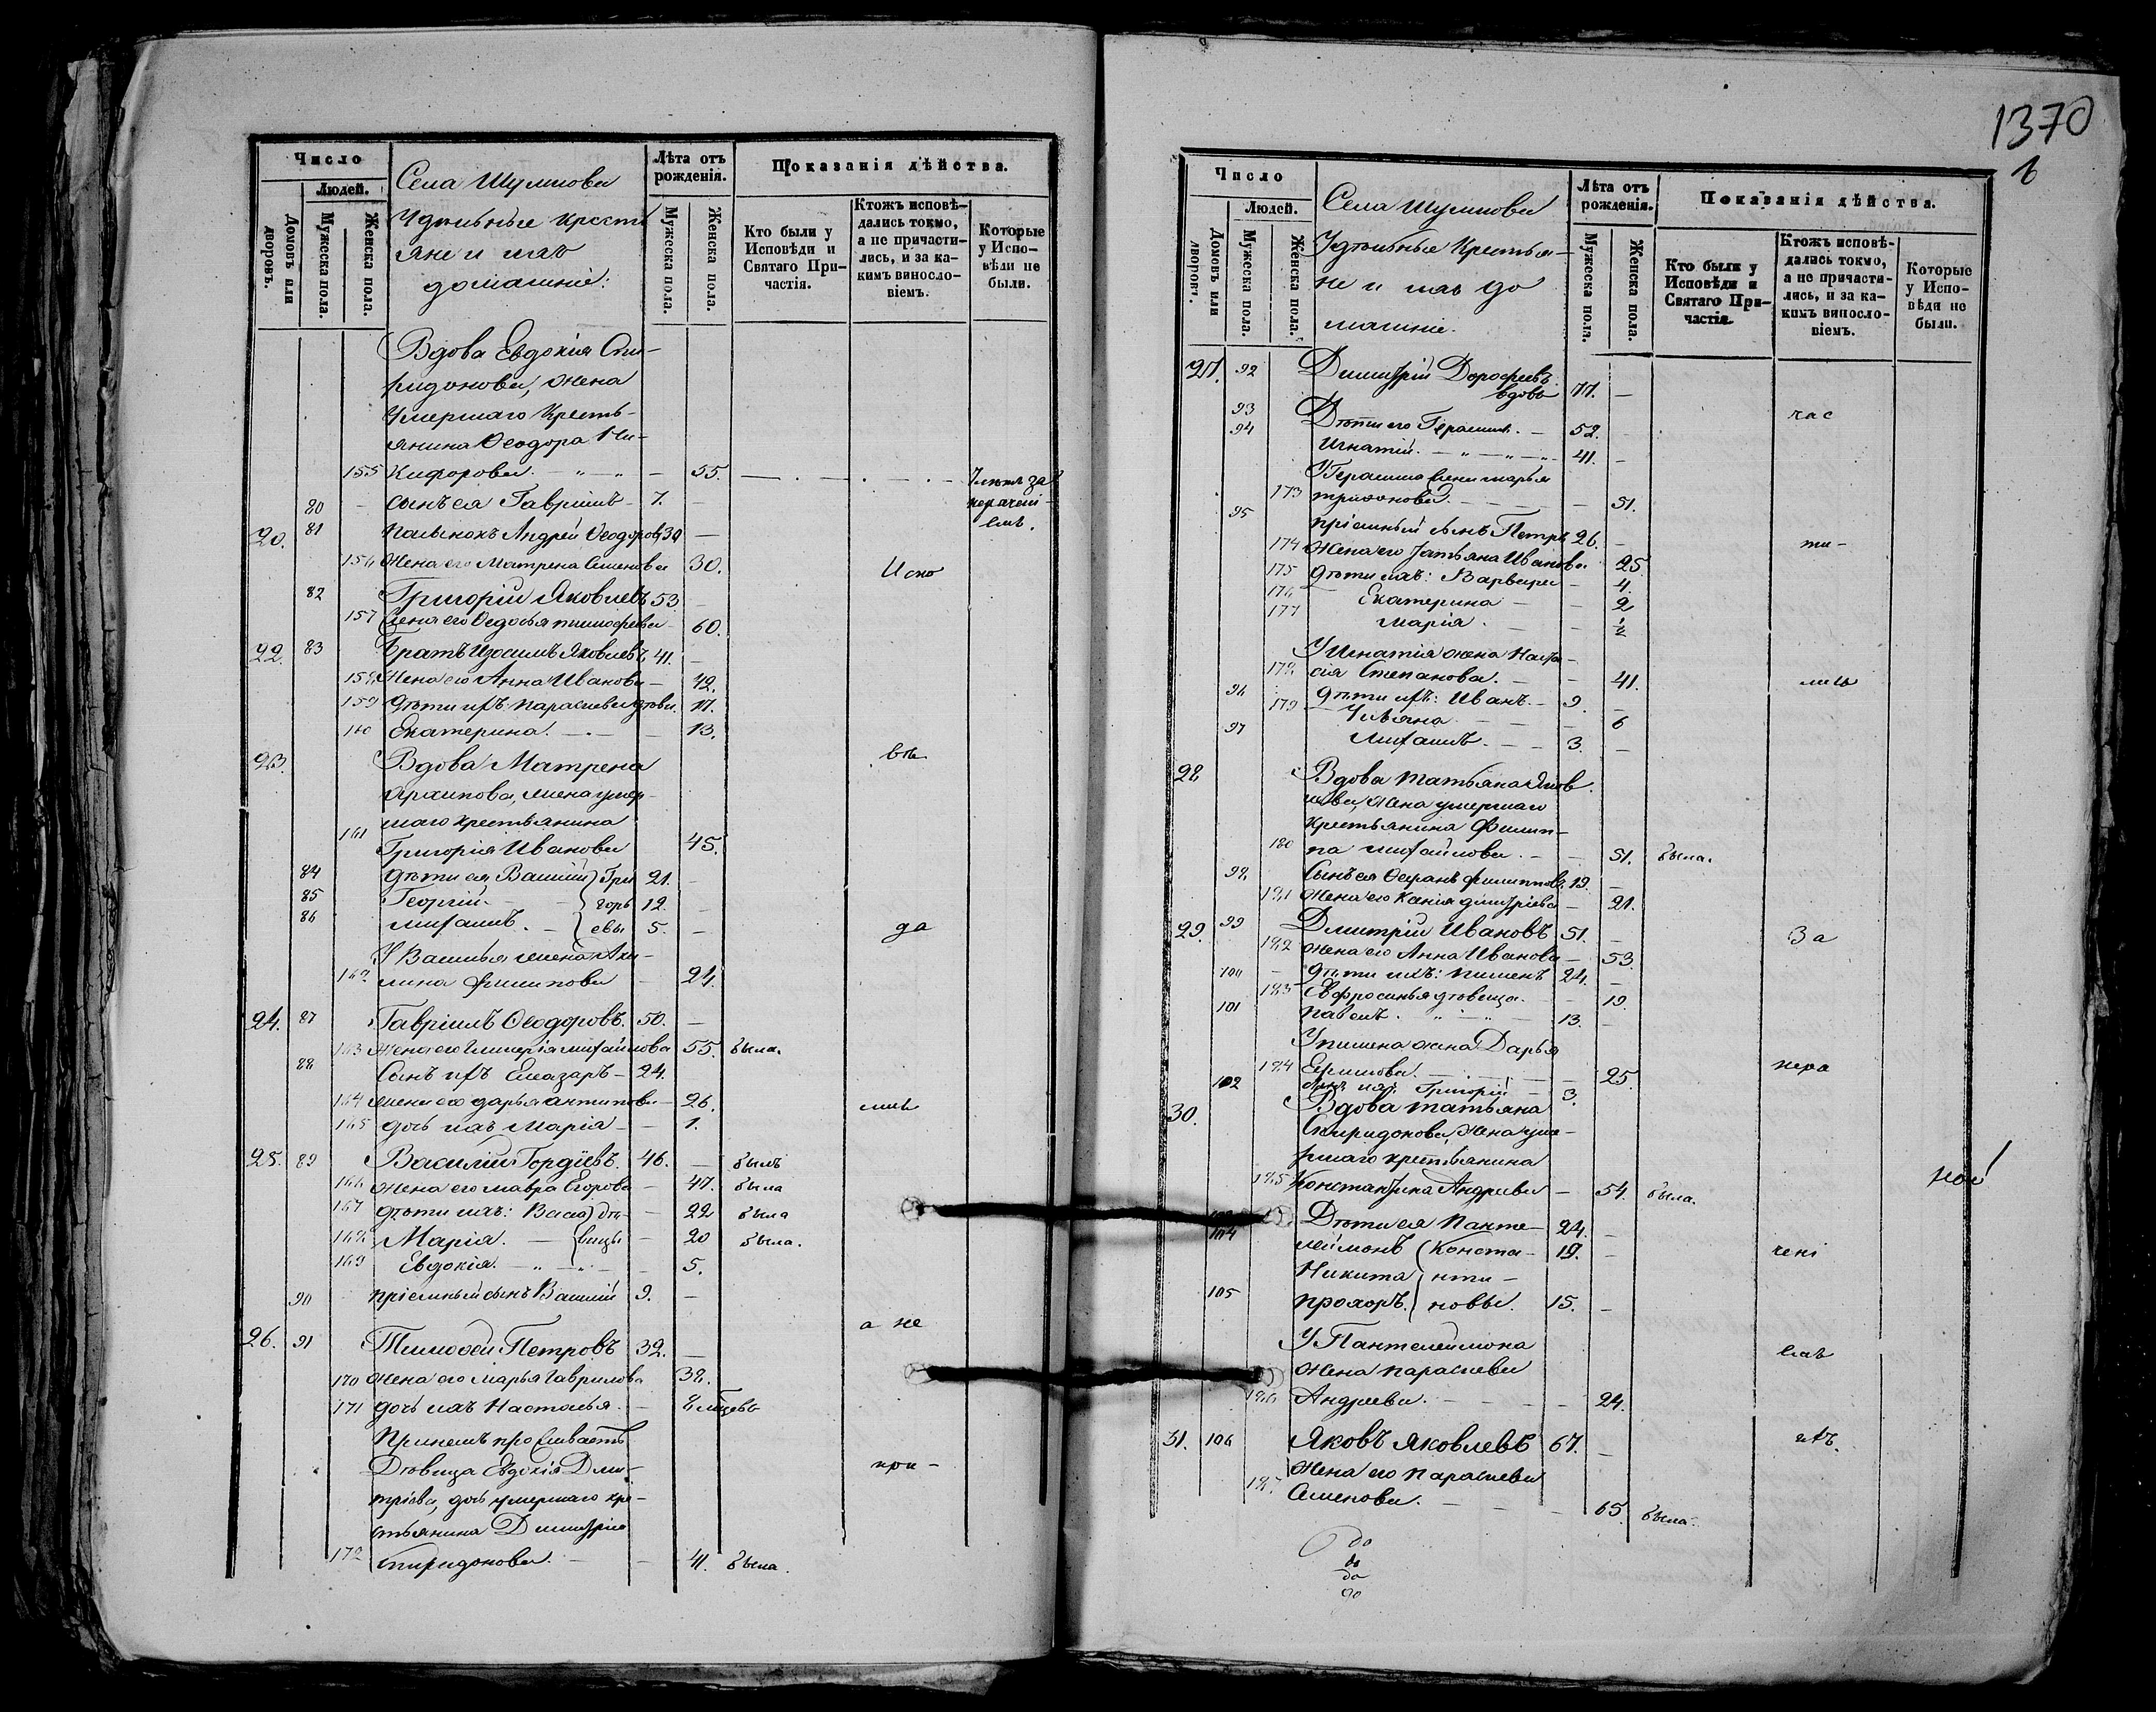 Число
Людей.
Домовъ или дворовъ.
Мужеска пола.
Женска пола.
Села Шумпова
Удѣльные крестьяне и ихъ
домашніе:
Лѣта отъ рожденія.
Мужеска пола.
Женска пола.
Показанія дѣйства.
Кто были у Исповѣди и Святаго Причастія.
Ктожъ исповѣдались токмо, а не причастились, и за какимъ винословіемъ.
Которые у Исповѣди не были.
Вдова Евдокія Спи-
ридонова, жена
Умершаго Кресть-
янина Ѳеодора Ни-
155 Кифорова. 55.
80 сынъ ея Гавріилъ 7.
20. 81 Андрей Ѳеодоровъ 30
156 Жена его Матрена Семенова 30. Испо
82 Григорій Яковлевъ 53.
157 Жена его Ѳедосья Тимофеева 60.
22. 83 Братъ Изосимъ Яковлевъ 41.
158 Жена его Анна Иванова 42.
159 Дѣти ихъ: Параскева 17.
160 Екатерина. 13.
23. Вдова Матрена вѣ
Архипова, жена умер-
шаго крестьянина
161 Григорія Иванова 45.
84 Дѣти ея Василій Гри 21.
85 Георгій горь 12.
86 Михаилъ. евы 5. да
У Василья жена Аку-
162 лина Филипова 24.
24. 87 Гавріилъ Ѳеодоровъ. 50.
163 Жена его Гликерія Михайлова 55. была.
88 Сынъ ихъ Елазаръ 24.
164 Жена его Дарья Антипова 26. лись
165 дочь ихъ Марія 1.
25. 89 Василій Гордѣевъ. 46. былъ
166 Жена его Мавра Егорова 47. была
167 дѣти ихъ: Васса дѣ- 22 была
168 Марія. вицы 20 была.
169 Евдокія. 5.
90 пріемный сынъ Василій 9.
а не
26. 91 Тимоѳей Петровъ 32.
170 Жена его Марья Гаврилова 32.
171 дочь ихъ Настасья
При немъ проживаетъ
Дѣвица Евдокія Дми- при-
тріева, дочь умершаго кре-
стьянина Димитрія
172 Спиридонова. 41. была.
1370
Число
Людей.
Домовъ или дворовъ.
Мужеска пола.
Женска пола.
Села Шумпова
Удѣльные Крестья-
не и ихъ до
машніе.
Лѣта отъ рожденія.
Мужеска пола.
Женска пола.
Показанія дѣйства.
Кто были у Исповѣди и Святаго Причастія.
Ктожъ исповѣдались токмо, а не причастились, и за какимъ винословіемъ.
Которые у Исповѣди не были.
27. 92 Димитрій Дороѳеевъ
вдовъ 77.
93 Дѣти его Герасимъ. 52. час
94 Игнатій. 41.
У Герасима жена Марья
173 Трифонова. 51.
95 пріемный сынъ Петръ 26. ти-
174 Жена его Татьяна Иванова 25.
175 дѣти ихъ: Варвара 4.
176 Екатерина 2
177 Марія. ½
У Игнатія жена Наста-
178 сія Степанова. 41. лись
96 дѣти ихъ: Иванъ. 9.
179 Ульяна 6
97 Михаилъ. 3.
28. Вдова Татьяна Яков
лева, жена умершаго
Крестьянина Филип-
180 па Михайлова. 51. была.
98 Сынъ ея Филипповъ. 19.
181 Жена его Ксенія Димитріева 21.
29. 99 Дмитрій Ивановъ 51. За
182 Жена его Анна Иванова 53.
100 Дѣти ихъ: Пименъ 24.
183 Евфросинья дѣвица. 19.
101 Павелъ. 13.
У Пимена жена Дарья
184 Ермилова. 25. нера
102 сынъ ихъ Григорій 3.
30. Вдова Татьяна
Спиридонова, жена уме-
ршаго крестьянина
185 Константина Андреева 54. была.
Дѣти ея Панте- 24.
104 леймонъ Конста- 19. чені
Никита нти-
105 Прохоръ. новы. 15.
У Пантелеймона
Жена Параскева емъ
186 Андреева. 24.
31. 106 Яковъ Яковлевъ 67. ихъ.
Жена его Параскева
187. Семенова. 65. была.
до
до
до
до